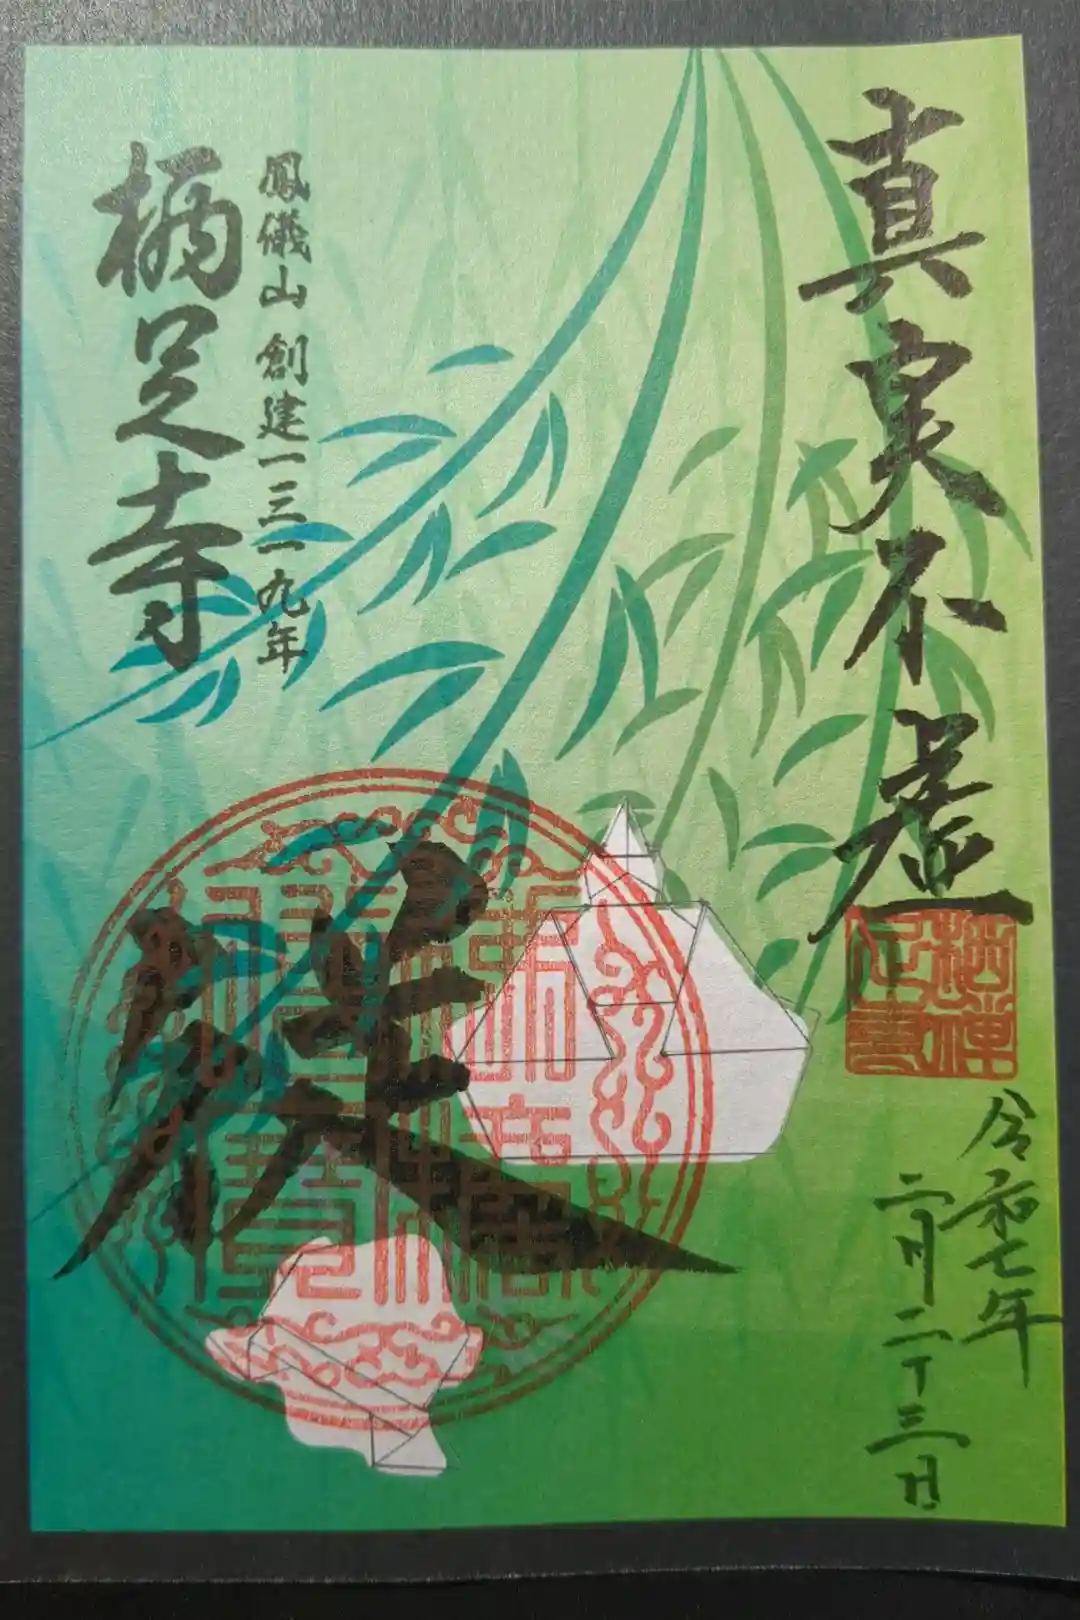 真実不虚
令和七年
二月二十三日
鳳儀山 創建一三一九年
栖足寺